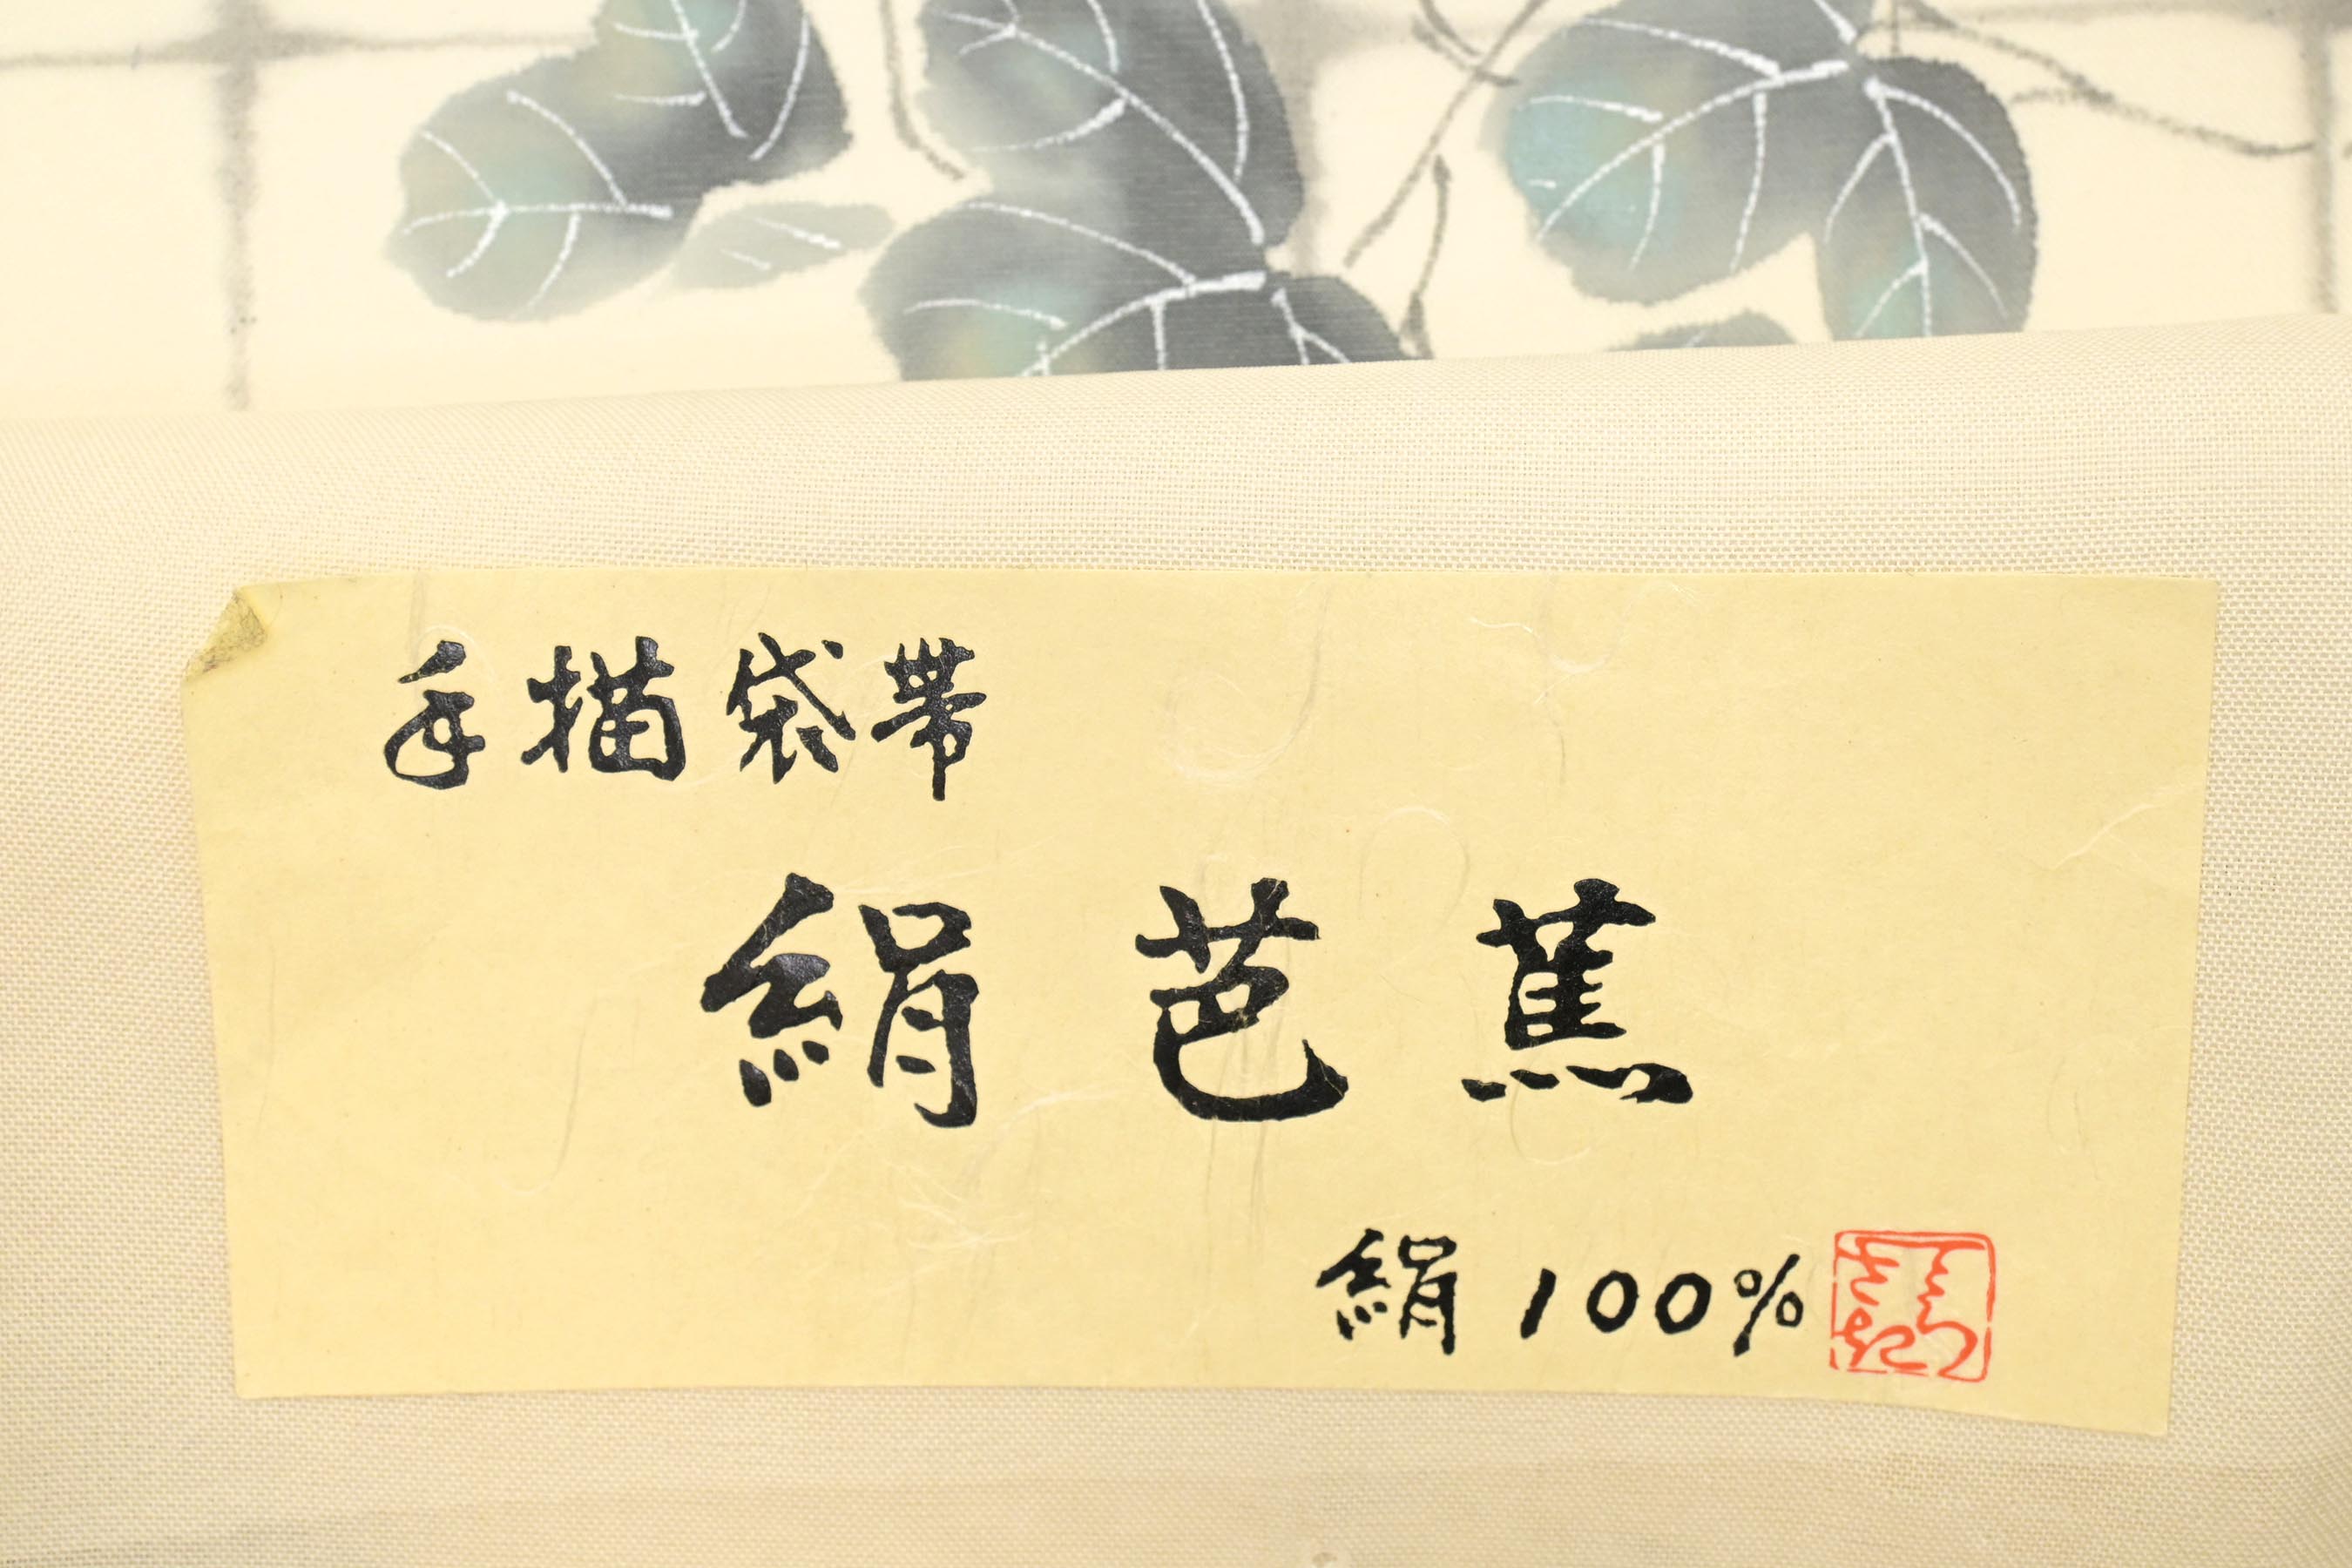 手描袋帯
絹芭蕉
絹100%